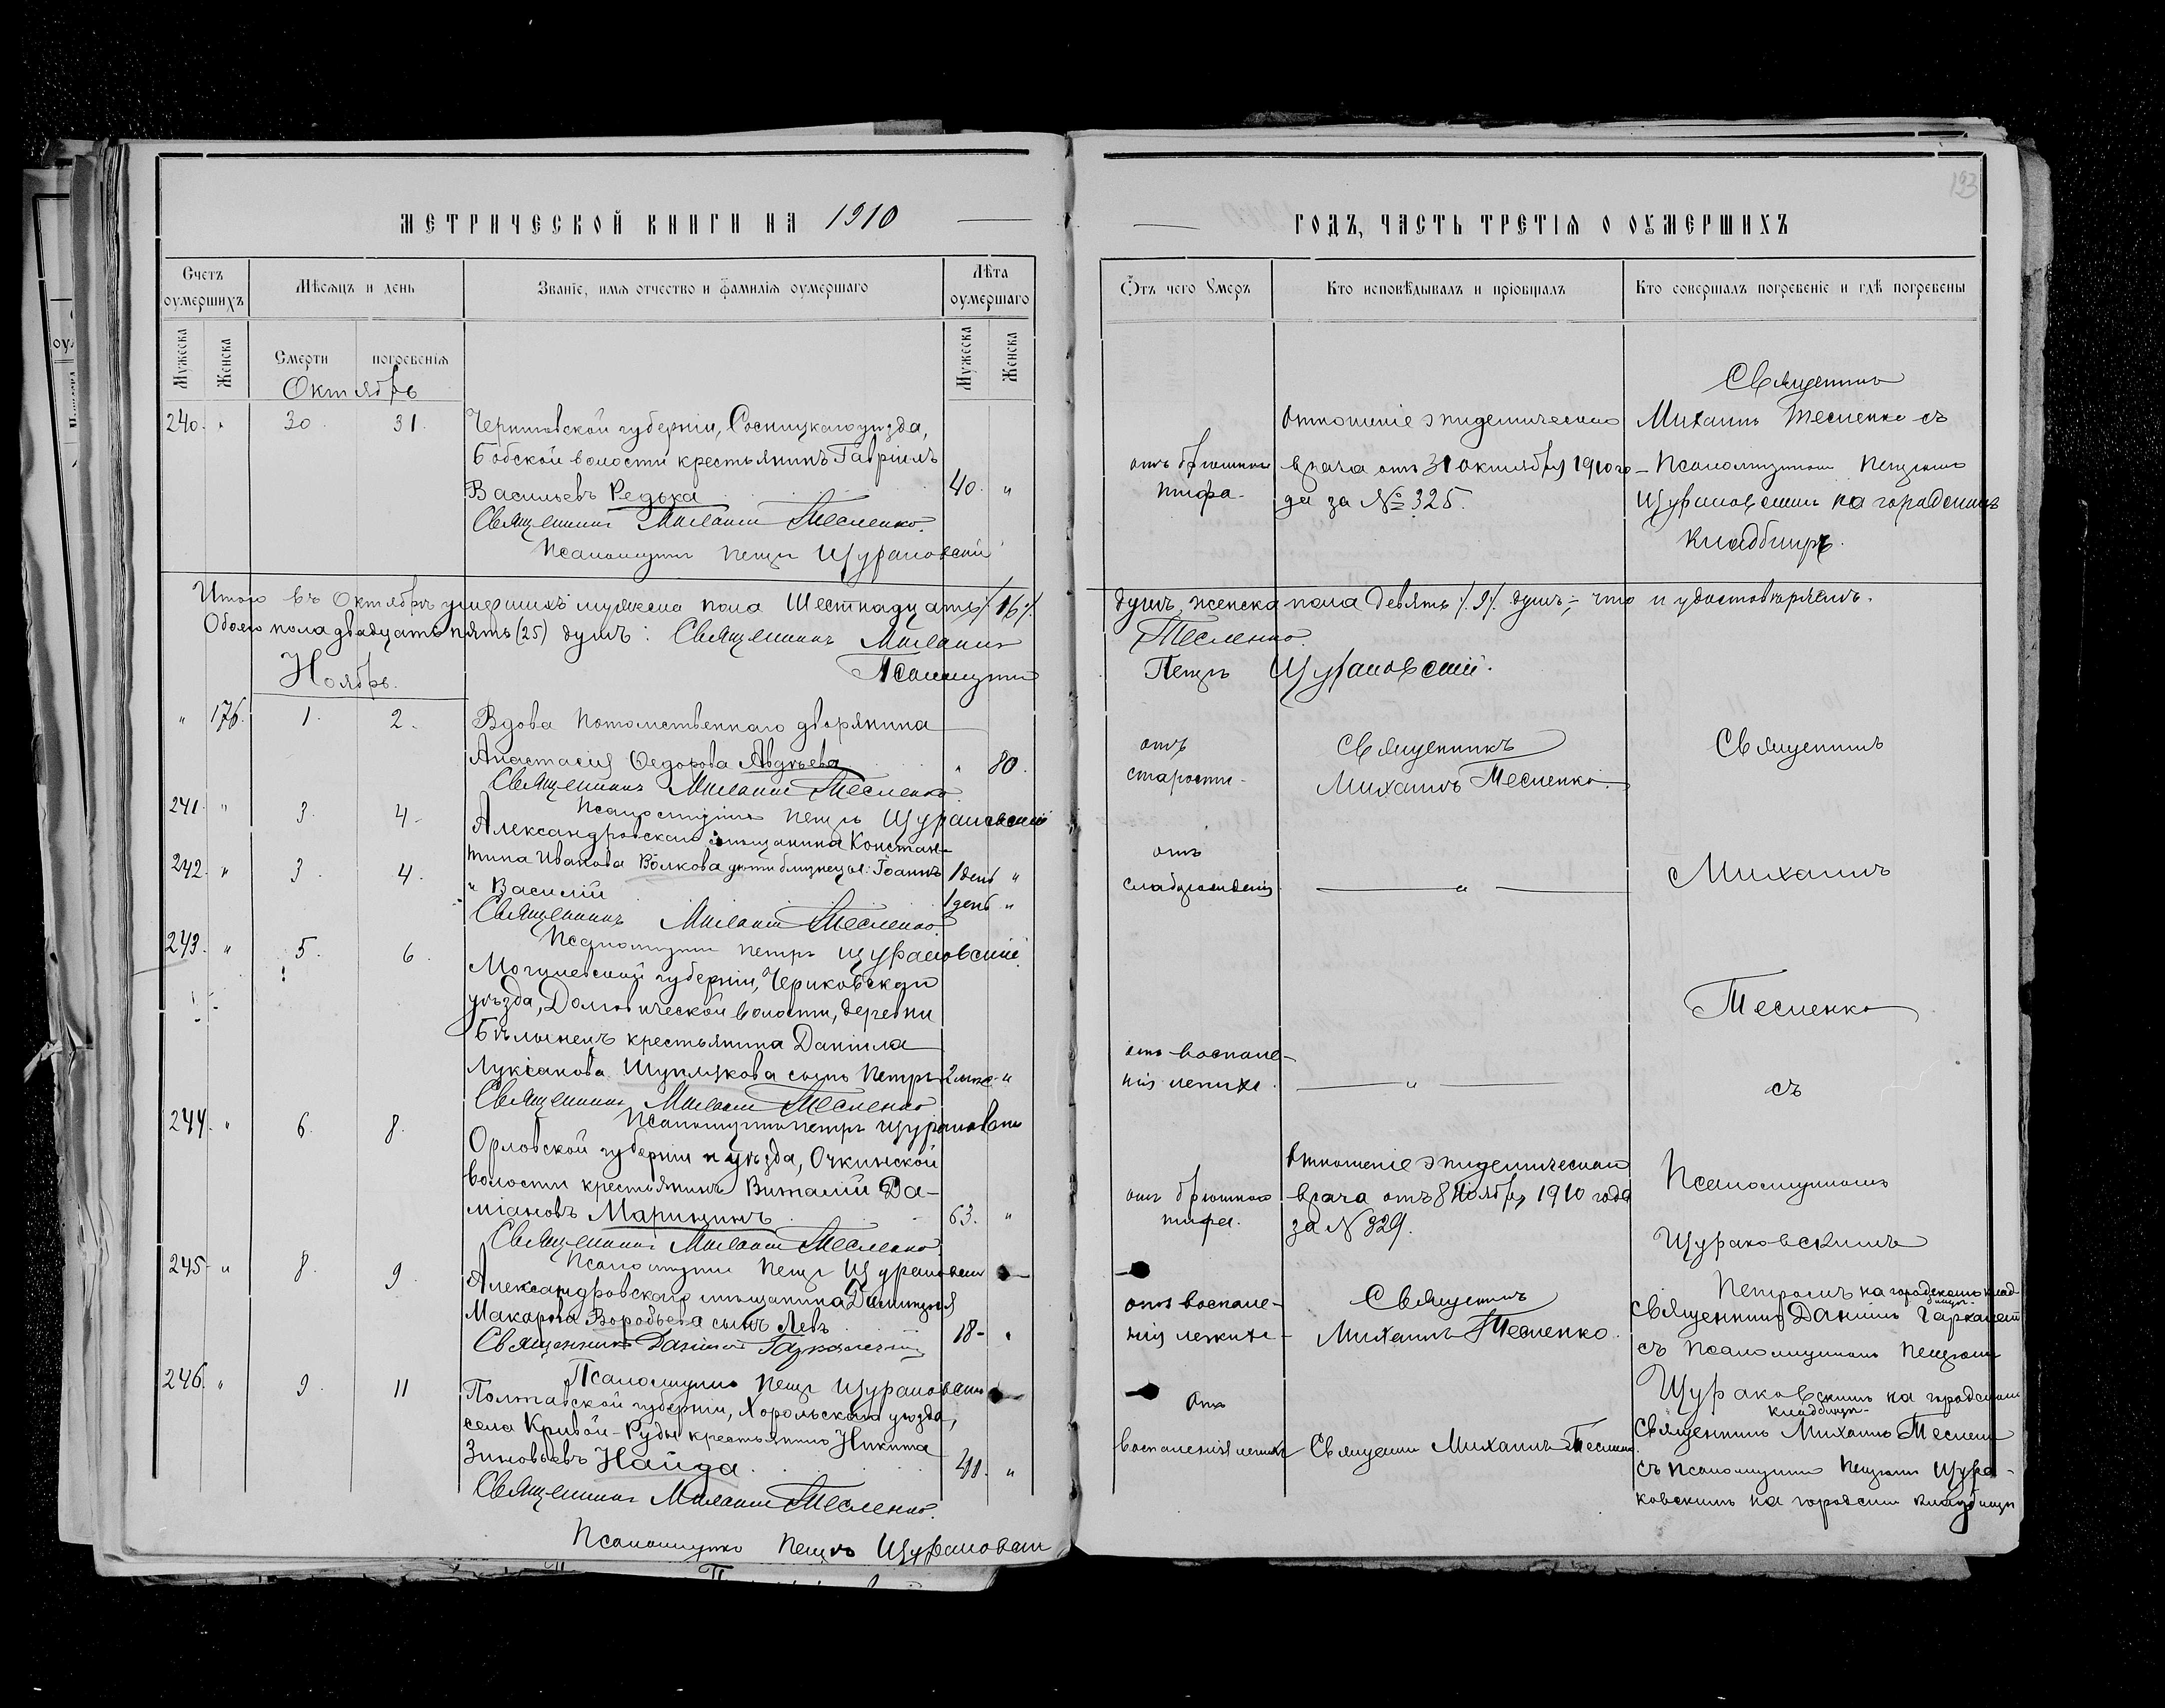 МЕТРИЧЕСКОЙ КНИГИ НА 1910
Счетъ оумершихъ
Мѣсяцъ и день
Званіе, имя отчество и фамилія оумершаго
Лѣта оумершаго
Мужеска
Женска
Смерти
погребенія
Мужеска
Женска
Октябрь
240. " 30. 31.
Черниговской губерніи, Сосницкаго уѣзда,
волости крестьянинъ Гавріилъ
Васильевъ Редька 40. "
Священникъ Михаилъ Тесленко.
Псаломщикъ Петръ Щураковскій
Итого въ Октябрѣ умершихъ мужска пола Шестнадцать /16/.
Обоего пола двадцать пять (25) душъ: Священникъ Михаилъ
Псаломщикъ
Ноябрь.
" 176. 1. 2.
Вдова потомственнаго дворянина
Анастасія Ѳедорова Авдѣева " 80.
Священникъ Михаилъ Тесленко.
Псаломщикъ Петръ Щураковскій
241. " 3. 4.
Александровскаго мѣщанина Констан-
тина Иванова Волкова дѣти близнецы: Іоаннъ 1 день "
242. " 3. 4.
и Василій 1 день "
Священникъ Михаилъ Тесленко.
Псаломщикъ Петръ Щураковскій.
243. " 5. 6.
Могилевской губерніи, Чериковскаго
уѣзда, волости, деревни
крестьянина Даніила
сынъ Петръ 2 "
Священникъ Михаилъ Тесленко
Псаломщикъ Петръ Щураковскій
244. " 6. 8.
Орловской губерніи и уѣзда, Очкинской
волости крестьянинъ Виталій Да-
міановъ Марицинъ 63. "
Священникъ Михаилъ Тесленко.
Псаломщикъ Петръ Щураковскій
245 " 8. 9.
Александровскаго мѣщанина Димитрія
Макарова Воробьева сынъ Левъ 18 "
Священникъ Даніилъ
Псаломщикъ Петръ Щураковскій
246. " 9. 11
Полтавской губерніи, Хорольскаго уѣзда,
села Кривой-Руды крестьянинъ Никита
Зиновьевъ Найда 41. "
Священникъ Михаилъ Тесленко.
Псаломщикъ Петръ Щураковскій
ГОДЪ, ЧАСТЬ ТРЕТІЯ О ОУМЕРШИХЪ
Отъ чего Умеръ
Кто исповѣдывалъ и пріобщалъ
Кто совершалъ погребеніе и гдѣ погребены
отъ брюшного
тифа.
Отношеніе эпидемическаго
врача отъ 31 октября 1910 го-
да за № 325.
Священникъ
Михаилъ Тесленко съ
Псаломщикомъ Петромъ
Щураковскимъ на городскомъ
кладбищѣ.
душъ, женска пола девять /9/ душъ, что и удостовѣряемъ.
Тесленко.
Петръ Щураковскій.
отъ
старости.
Священникъ
Михаилъ Тесленко.
Священникъ
отъ
слаборожденія
"
Михаилъ
Тесленко
отъ воспале-
нія легкихъ.
"
съ
отъ брюшного
тифа.
Отношеніе эпидемическаго
врача отъ 8 Ноября 1910 года
за № 329.
Псаломщикомъ
Щураковскимъ
Петромъ на городскомъ клад-
бищѣ.
отъ воспале-
нія легкихъ
Священникъ
Михаилъ Тесленко.
Священникъ Даніилъ
съ Псаломщикомъ Петромъ
Щураковскимъ на городскомъ
кладбищѣ.
Отъ
воспаленія легкихъ
Священникъ Михаилъ Тесленко.
Священникъ Михаилъ Тесленко
съ Псаломщикомъ Петромъ Щура-
ковскимъ на городскомъ кладбищѣ